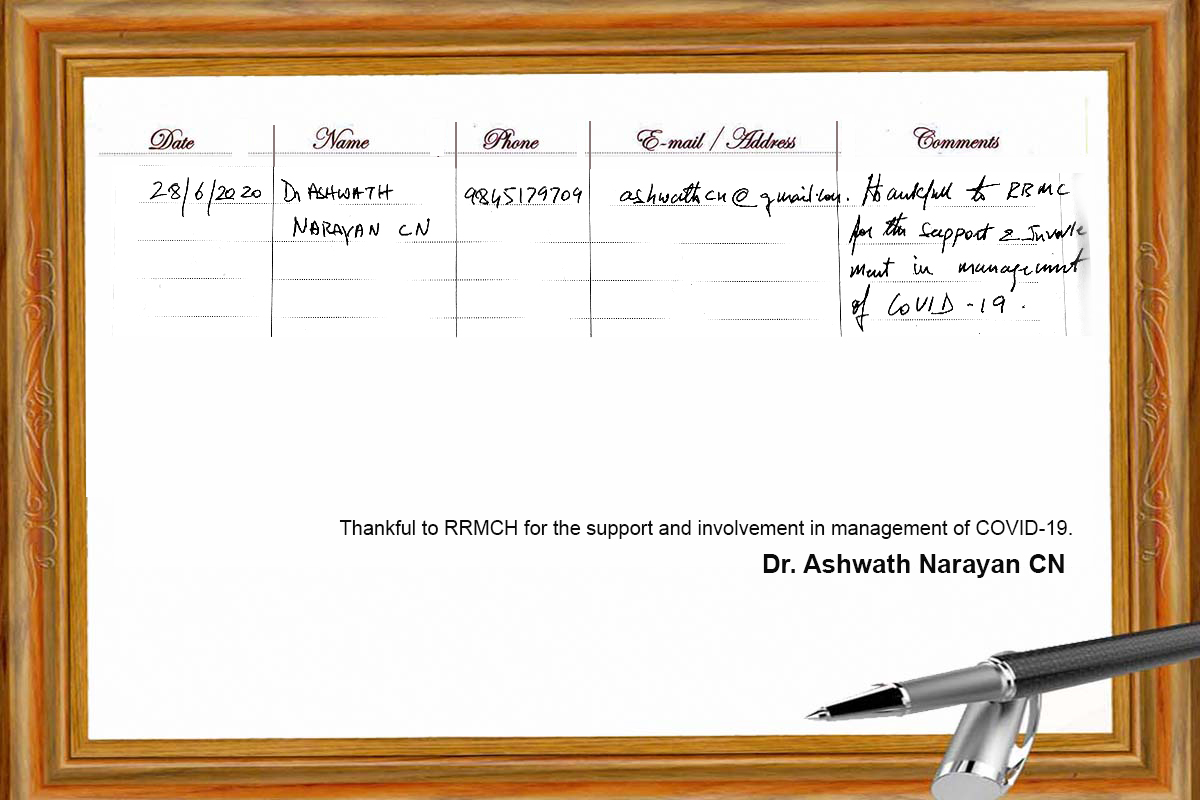 Date Name Phone E-mail / Address Comments
28/6/2020 Dr ASHWATH 9845179709 ashwathcn@gmail.com. Thankful to RRMC
NARAYAN CN for the support & Involve
ment in management
of COVID-19.
Thankful to RRMCH for the support and involvement in management of COVID-19.
Dr. Ashwath Narayan CN